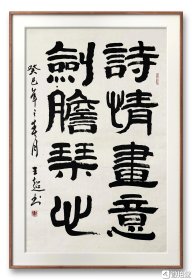 詩情畫意
劍膽琴心
癸巳年之春月 王超书